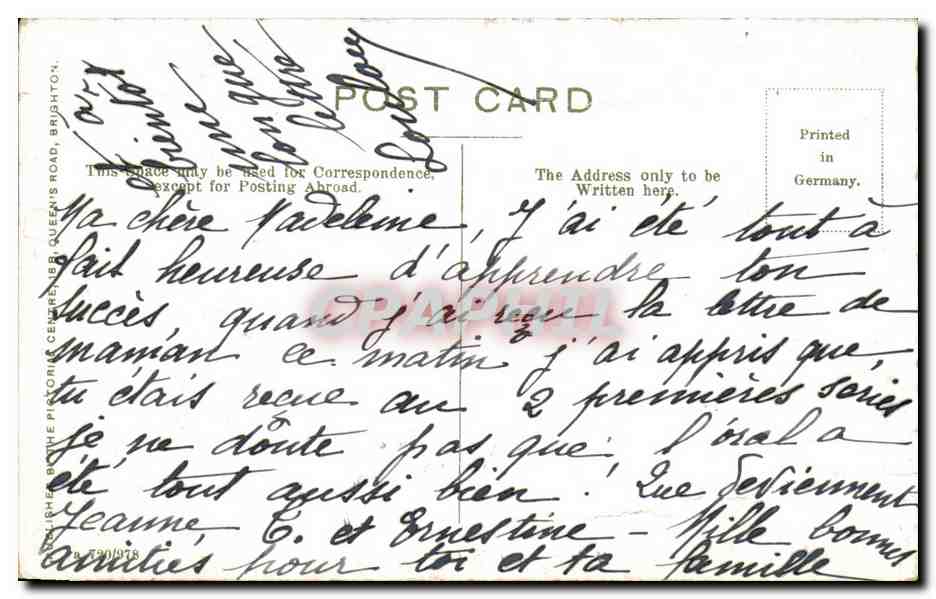 POST CARD
This Space may be used for Correspondence,
except for Posting Abroad.
The Address only to be
Written here.
Printed
in
Germany.
Ma chère Madeleine, J'ai été tout à
fait heureuse d'apprendre ton
succès, quand j'ai reçu la lettre de
maman ce matin j'ai appris que
tu étais reçue au 2 premières séries
je ne doute pas que l'oral a
été tout aussi bien! Que deviennent
Jeanne, C. et Ernestine - Mille bonnes
amitiés pour toi et ta famille
et à
bientôt
une
longue
lettre
PUBLISHED BY THE PICTORIAL CENTRE, 18B, QUEEN'S ROAD, BRIGHTON.
a 720/978
CPAPHIL